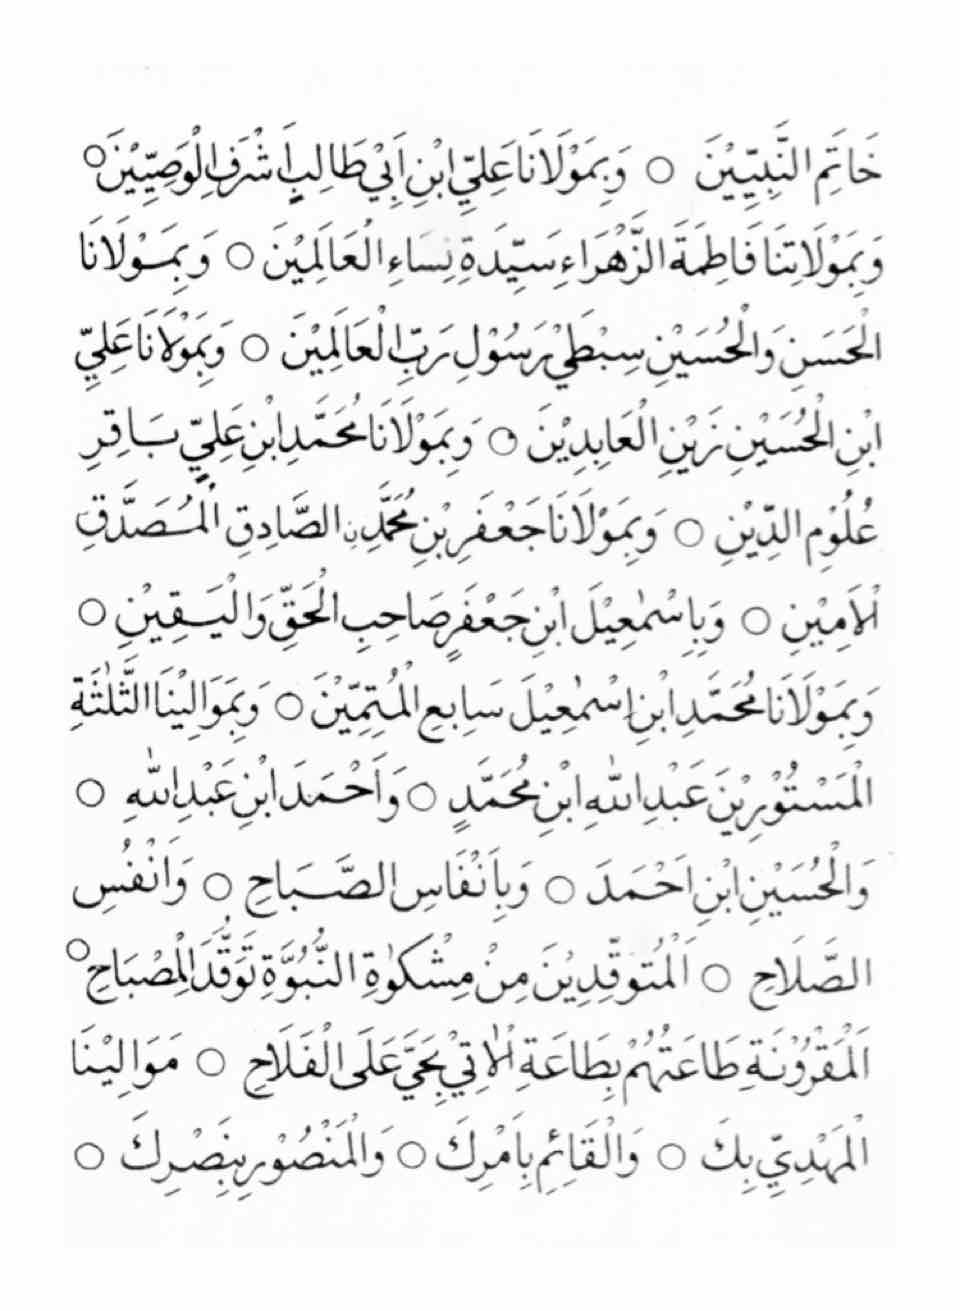 خَاتَمِ النَّبِيِّيْنَ ○ وَبِمَوْلَانَا عَلِيِّ ابْنِ اَبِيْ طَالِبٍ اَشْرَفِ الْوَصِيِّيْنَ ○
وَبِمَوْلَاتِنَا فَاطِمَةَ الزَّهْرَاءِ سَيِّدَةِ نِسَاءِ الْعَالَمِيْنَ ○ وَبِمَوْلَانَا
الْحَسَنِ وَالْحُسَيْنِ سِبْطَيْ رَسُوْلِ رَبِّ الْعَالَمِيْنَ ○ وَبِمَوْلَانَا عَلِيِّ
ابْنِ الْحُسَيْنِ زَيْنِ الْعَابِدِيْنَ ○ وَبِمَوْلَانَا مُحَمَّدِ ابْنِ عَلِيٍّ بَاقِرِ
عُلُوْمِ الدِّيْنِ ○ وَبِمَوْلَانَا جَعْفَرِ بْنِ مُحَمَّدِنِ الصَّادِقِ الْمُصَدَّقِ
الْاَمِيْنِ ○ وَبِاِسْمٰعِيْلَ ابْنِ جَعْفَرٍ صَاحِبِ الْحَقِّ وَالْيَقِيْنِ ○
وَبِمَوْلَانَا مُحَمَّدِ ابْنِ اِسْمٰعِيْلَ سَابِعِ الْمُتِمِّيْنَ ○ وَبِمَوَالِيْنَا الثَّلٰثَةِ
الْمَسْتُوْرِيْنَ عَبْدِ اللّٰهِ ابْنِ مُحَمَّدٍ ○ وَاَحْمَدَ ابْنِ عَبْدِ اللّٰهِ ○
وَالْحُسَيْنِ ابْنِ اَحْمَدَ ○ وَبِاَنْفَاسِ الصَّبَاحِ ○ وَاَنْفُسِ
الصَّلَاحِ ○ اَلْمُتَوَقِّدِيْنَ مِنْ مِشْكٰوةِ النُّبُوَّةِ تَوَقُّدَ الْمِصْبَاحِ ○
اَلْمَقْرُوْنَةِ طَاعَتُهُمْ بِطَاعَةِ الْاٰتِيْ بِحَيَّ عَلَى الْفَلَاحِ ○ مَوَالِيْنَا
الْمَهْدِيِّ بِكَ ○ وَالْقَائِمِ بِاَمْرِكَ ○ وَالْمَنْصُوْرِ بِنَصْرِكَ ○